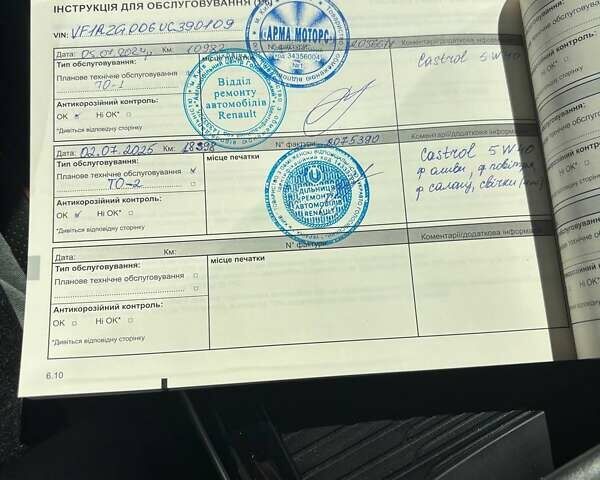 ІНСТРУКЦІЯ ДЛЯ ОБСЛУГОВУВАННЯ
VIN: VF1RZG006UC390109
Дата: 05.07.2024 Км: 10982 місце
Коментарі/додаткова інформація
Тип обслуговування:
Планове технічне обслуговування
ТО-1
Антикорозійний контроль:
ОК Ні ОК*
*Дивіться відповідну сторінку
АРМА МОТОРС
34356004
№1
Castrol 5W40
Відділ
ремонту
автомобілів
Renault
Дата: 02.07.2025 Км: 18398 N° фактури 2075390
Коментарі/додаткова інформація
Тип обслуговування:
Планове технічне обслуговування
ТО-2
Антикорозійний контроль:
ОК Ні ОК*
*Дивіться відповідну сторінку
місце печатки
ДІЛЬНИЦЯ
РЕМОНТУ
АВТОМОБІЛІВ
RENAULT
Castrol 5W40
ф оливи, ф повітря,
ф салону, свічки
Дата: Км: N° фактури
Коментарі/додаткова інформація
Тип обслуговування:
Планове технічне обслуговування
Антикорозійний контроль:
ОК Ні ОК*
*Дивіться відповідну сторінку
місце печатки
6.10